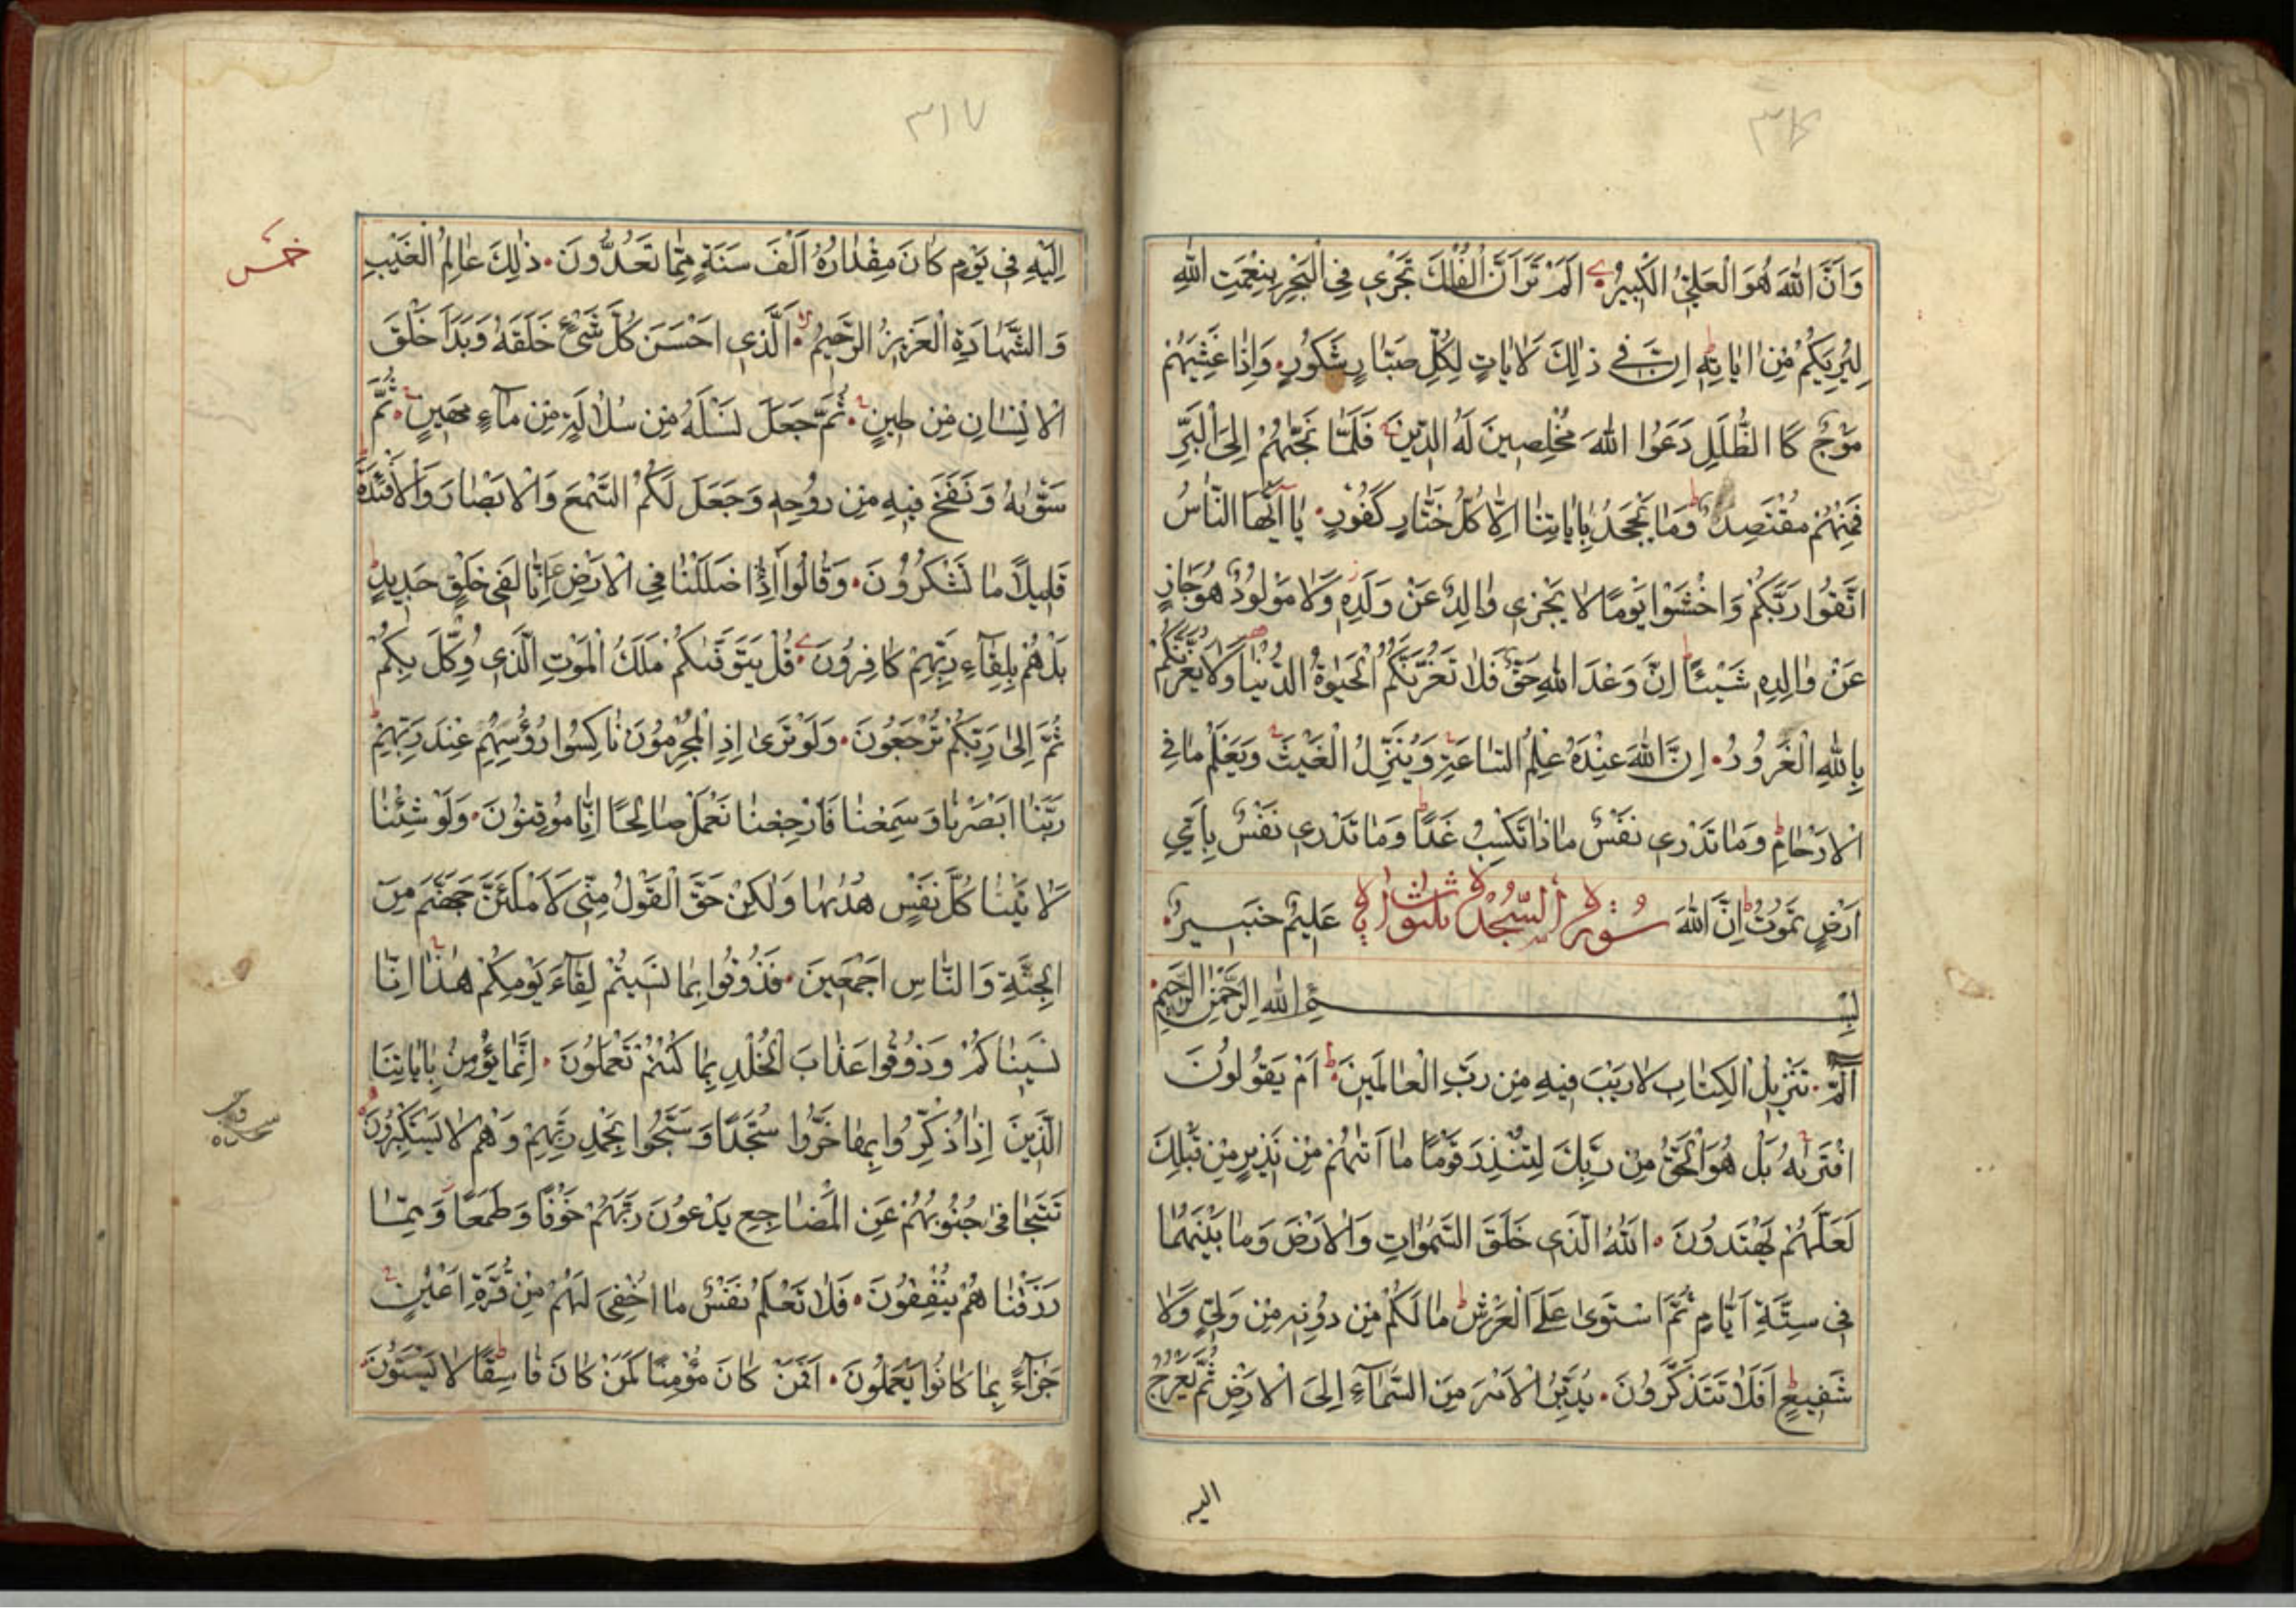 ٣١٦
وَاَنَّ اللّٰهَ هُوَ الْعَلِيُّ الْكَبِيرُ اَلَمْ تَرَ اَنَّ الْفُلْكَ تَجْرِي فِي الْبَحْرِ بِنِعْمَتِ اللّٰهِ
لِيُرِيَكُمْ مِنْ اٰيَاتِهِ اِنَّ فِي ذٰلِكَ لَاٰيَاتٍ لِكُلِّ صَبَّارٍ شَكُورٍ وَاِذَا غَشِيَهُمْ
مَوْجٌ كَا الظُّلَلِ دَعَوُا اللّٰهَ مُخْلِصِينَ لَهُ الدِّينَ فَلَمَّا نَجّٰيهُمْ اِلَى الْبَرِّ
فَمِنْهُمْ مُقْتَصِدٌ وَمَا يَجْحَدُ بِاٰيَاتِنَا اِلَّا كُلُّ خَتَّارٍ كَفُورٍ يَا اَيُّهَا النَّاسُ
اتَّقُوا رَبَّكُمْ وَاخْشَوْا يَوْمًا لَا يَجْزِي وَالِدٌ عَنْ وَلَدِهِ وَلَا مَوْلُودٌ هُوَ جَازٍ
عَنْ وَالِدِهِ شَيْئًا اِنَّ وَعْدَ اللّٰهِ حَقٌّ فَلَا تَغُرَّنَّكُمُ الْحَيٰوةُ الدُّنْيَا وَلَا يَغُرَّنَّكُمْ
بِاللّٰهِ الْغَرُورُ اِنَّ اللّٰهَ عِنْدَهُ عِلْمُ السَّاعَةِ وَيُنَزِّلُ الْغَيْثَ وَيَعْلَمُ مَا فِي
الْاَرْحَامِ وَمَا تَدْرِي نَفْسٌ مَاذَا تَكْسِبُ غَدًا وَمَا تَدْرِي نَفْسٌ بِاَيِّ
اَرْضٍ تَمُوتُ اِنَّ اللّٰهَ سُورَةُ السَّجْدَةِ ثلثون اية عَلِيمٌ خَبِيرٌ
بِسْمِ اللّٰهِ الرَّحْمٰنِ الرَّحِيمِ
الٓمٓ تَنْزِيلُ الْكِتَابِ لَا رَيْبَ فِيهِ مِنْ رَبِّ الْعَالَمِينَ اَمْ يَقُولُونَ
افْتَرٰيهُ بَلْ هُوَ الْحَقُّ مِنْ رَبِّكَ لِتُنْذِرَ قَوْمًا مَا اَتٰيهُمْ مِنْ نَذِيرٍ مِنْ قَبْلِكَ
لَعَلَّهُمْ يَهْتَدُونَ اَللّٰهُ الَّذِي خَلَقَ السَّمٰوَاتِ وَالْاَرْضَ وَمَا بَيْنَهُمَا
فِي سِتَّةِ اَيَّامٍ ثُمَّ اسْتَوَى عَلَى الْعَرْشِ مَا لَكُمْ مِنْ دُونِهِ مِنْ وَلِيٍّ وَلَا
شَفِيعٍ اَفَلَا تَتَذَكَّرُونَ يُدَبِّرُ الْاَمْرَ مِنَ السَّمَاءِ اِلَى الْاَرْضِ ثُمَّ يَعْرُجُ
اليه
٣١٧
خمس
اِلَيْهِ فِي يَوْمٍ كَانَ مِقْدَارُهُ اَلْفَ سَنَةٍ مِمَّا تَعُدُّونَ ذٰلِكَ عَالِمُ الْغَيْبِ
وَالشَّهَادَةِ الْعَزِيزُ الرَّحِيمُ اَلَّذِي اَحْسَنَ كُلَّ شَيْءٍ خَلَقَهُ وَبَدَاَ خَلْقَ
الْاِنْسَانِ مِنْ طِينٍ ثُمَّ جَعَلَ نَسْلَهُ مِنْ سُلَالَةٍ مِنْ مَاءٍ مَهِينٍ ثُمَّ
سَوّٰيهُ وَنَفَخَ فِيهِ مِنْ رُوحِهِ وَجَعَلَ لَكُمُ السَّمْعَ وَالْاَبْصَارَ وَالْاَفْئِدَةَ
قَلِيلًا مَا تَشْكُرُونَ وَقَالُوا ءَاِذَا ضَلَلْنَا فِي الْاَرْضِ ءَاِنَّا لَفِي خَلْقٍ جَدِيدٍ
بَلْ هُمْ بِلِقَاءِ رَبِّهِمْ كَافِرُونَ قُلْ يَتَوَفّٰيكُمْ مَلَكُ الْمَوْتِ الَّذِي وُكِّلَ بِكُمْ
ثُمَّ اِلَى رَبِّكُمْ تُرْجَعُونَ وَلَوْ تَرَى اِذِ الْمُجْرِمُونَ نَاكِسُوا رُؤُسِهِمْ عِنْدَ رَبِّهِمْ
رَبَّنَا اَبْصَرْنَا وَسَمِعْنَا فَارْجِعْنَا نَعْمَلْ صَالِحًا اِنَّا مُوقِنُونَ وَلَوْ شِئْنَا
لَاٰتَيْنَا كُلَّ نَفْسٍ هُدٰيهَا وَلٰكِنْ حَقَّ الْقَوْلُ مِنِّي لَاَمْلَئَنَّ جَهَنَّمَ مِنَ
الْجِنَّةِ وَالنَّاسِ اَجْمَعِينَ فَذُوقُوا بِمَا نَسِيتُمْ لِقَاءَ يَوْمِكُمْ هٰذَا اِنَّا
نَسِينَاكُمْ وَذُوقُوا عَذَابَ الْخُلْدِ بِمَا كُنْتُمْ تَعْمَلُونَ اِنَّمَا يُؤْمِنُ بِاٰيَاتِنَا
الَّذِينَ اِذَا ذُكِّرُوا بِهَا خَرُّوا سُجَّدًا وَسَبَّحُوا بِحَمْدِ رَبِّهِمْ وَهُمْ لَا يَسْتَكْبِرُونَ
سجده
تَتَجَافَى جُنُوبُهُمْ عَنِ الْمَضَاجِعِ يَدْعُونَ رَبَّهُمْ خَوْفًا وَطَمَعًا وَمِمَّا
رَزَقْنَاهُمْ يُنْفِقُونَ فَلَا تَعْلَمُ نَفْسٌ مَا اُخْفِيَ لَهُمْ مِنْ قُرَّةِ اَعْيُنٍ
جَزَاءً بِمَا كَانُوا يَعْمَلُونَ اَفَمَنْ كَانَ مُؤْمِنًا كَمَنْ كَانَ فَاسِقًا لَا يَسْتَوُونَ